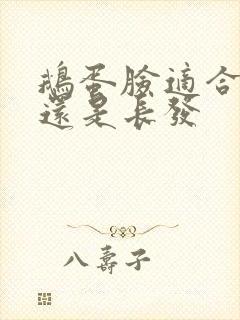 鵝蛋臉適合
還是長發
八壽子